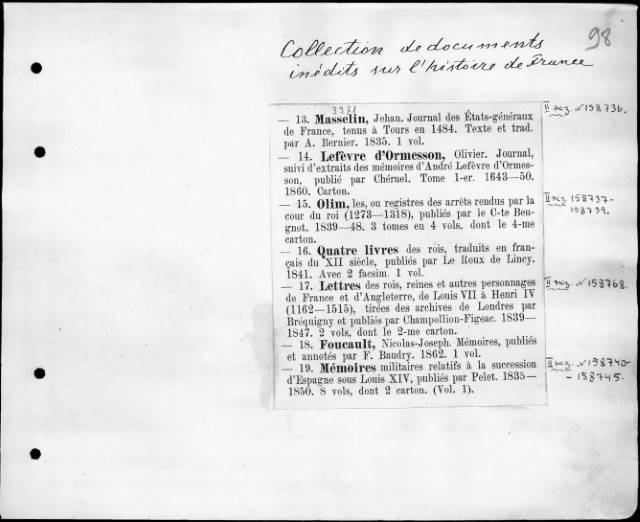 98
Collection de documents
inédits sur l'histoire de France
3921
— 13. Masselin, Jehan. Journal des États-généraux
de France, tenus à Tours en 1484. Texte et trad.
par A. Bernier. 1835. 1 vol.
II экз. №158736.
— 14. Lefèvre d'Ormesson, Olivier. Journal,
suivi d'extraits des mémoires d'André Lefèvre d'Ormes-
son, publié par Chéruel. Tome 1-er. 1643—50.
1860. Carton.
— 15. Olim, les, ou registres des arrêts rendus par la
cour du roi (1273—1318), publiés par le C-te Beu-
gnot. 1839—48. 3 tomes en 4 vols, dont le 4-me
carton.
II экз. 158737-
158739.
— 16. Quatre livres des rois, traduits en fran-
çais du XII siècle, publiés par Le Roux de Lincy.
1841. Avec 2 facsim. 1 vol.
— 17. Lettres des rois, reines et autres personnages
de France et d'Angleterre, de Louis VII à Henri IV
(1162—1515), tirées des archives de Londres par
Bréquigny et publiés par Champollion-Figeac. 1839—
1847. 2 vols, dont le 2-me carton.
II экз. №158768.
— 18. Foucault, Nicolas-Joseph. Mémoires, publiés
et annotés par F. Baudry. 1862. 1 vol.
— 19. Mémoires militaires relatifs à la succession
d'Espagne sous Louis XIV, publiés par Pelet. 1835—
1850. 8 vols, dont 2 carton. (Vol. 1).
II экз. №158740-
- 158745.